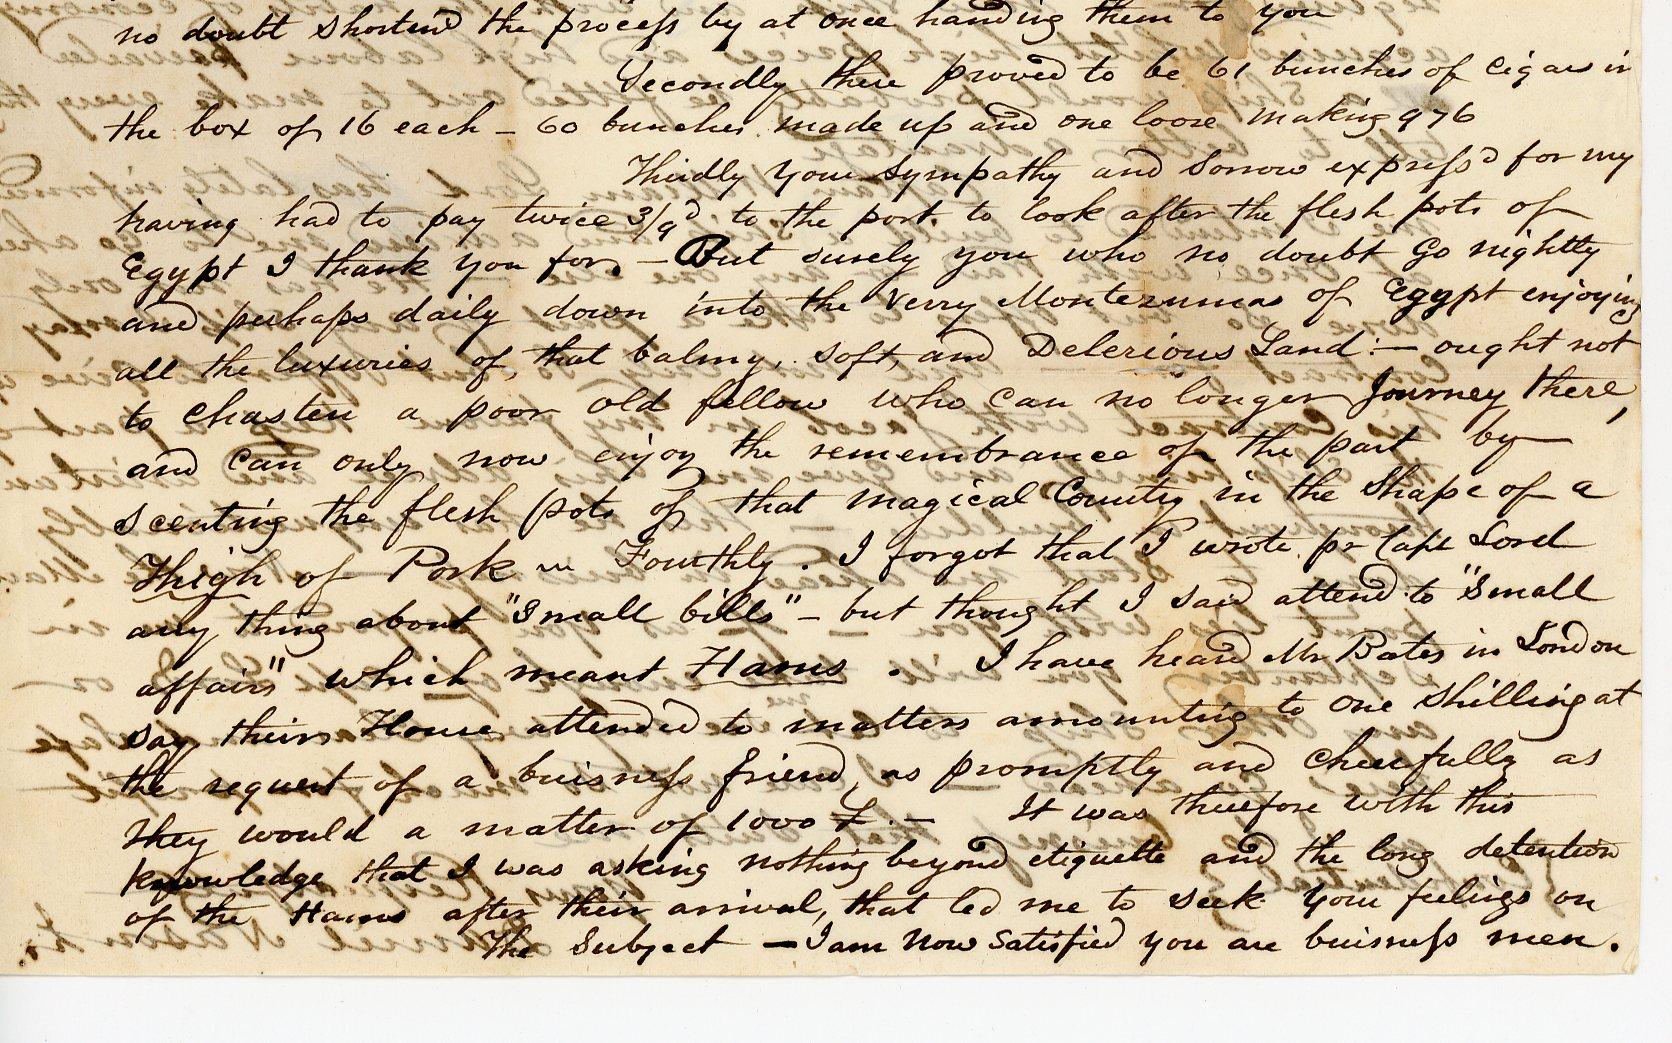 no doubt shortend the process by at once handing them to you
Secondly there proved to be 61 bunches of cigars in
the box of 16 each - 60 bunches made up and one loose making 976
Thirdly your sympathy and sorrow express'd for my
having had to pay twice 3/9d to the port. to look after the flesh pots of
Egypt I thank you for. - But surely you who no doubt go nightly
and perhaps daily down into the verry Montezumas of Egypt enjoying
all the luxuries of, that balmy, soft, and Delerious Land :- ought not
to chasten a poor old fellow who can no longer Journey there,
and can only now enjoy the remembrance of the past by
scenting the flesh pots of that magical Country in the shape of a
Thigh of Pork - Fourthly. I forgot that I wrote pr Capt Lord
any thing about "Small bills" - but thought I said attend to "Small
affairs" which meant Hams. I have heard Mr Bates in London
say their House attended to matters amounting to one shilling at
the request of a buisness friend, as promptly and cheerfully as
they would a matter of 1000 £. - It was therefore with this
knowledge that I was asking nothing beyond etiquette and the long detention
of the Hams after their arrival, that led me to seek your feelings on
The Subject - I am now satisfied you are buisness men.